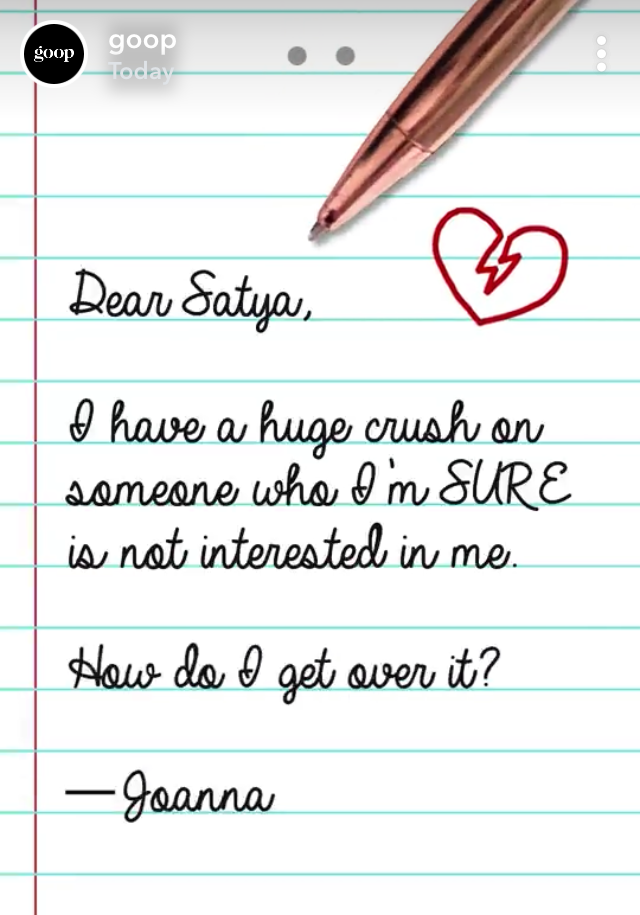 goop
goop
Today
Dear Satya,
I have a huge crush on
someone who I'm SURE
is not interested in me.
How do I get over it?
—Joanna